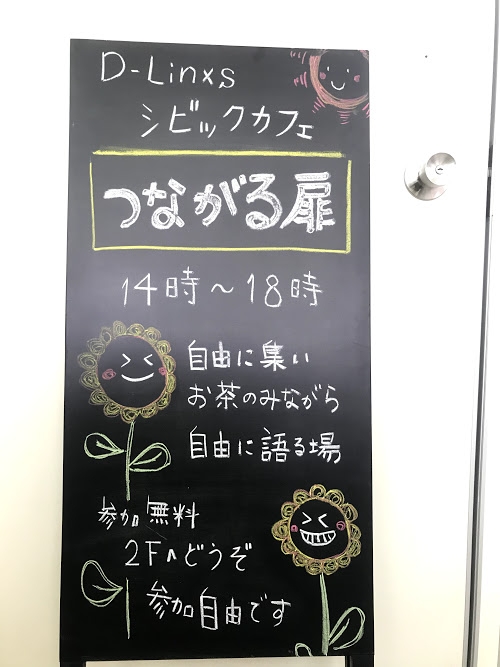 D-Linxs
シビックカフェ
つながる扉
14時〜18時
自由に集い
お茶のみながら
自由に語る場
参加無料
2Fへどうぞ
参加自由です